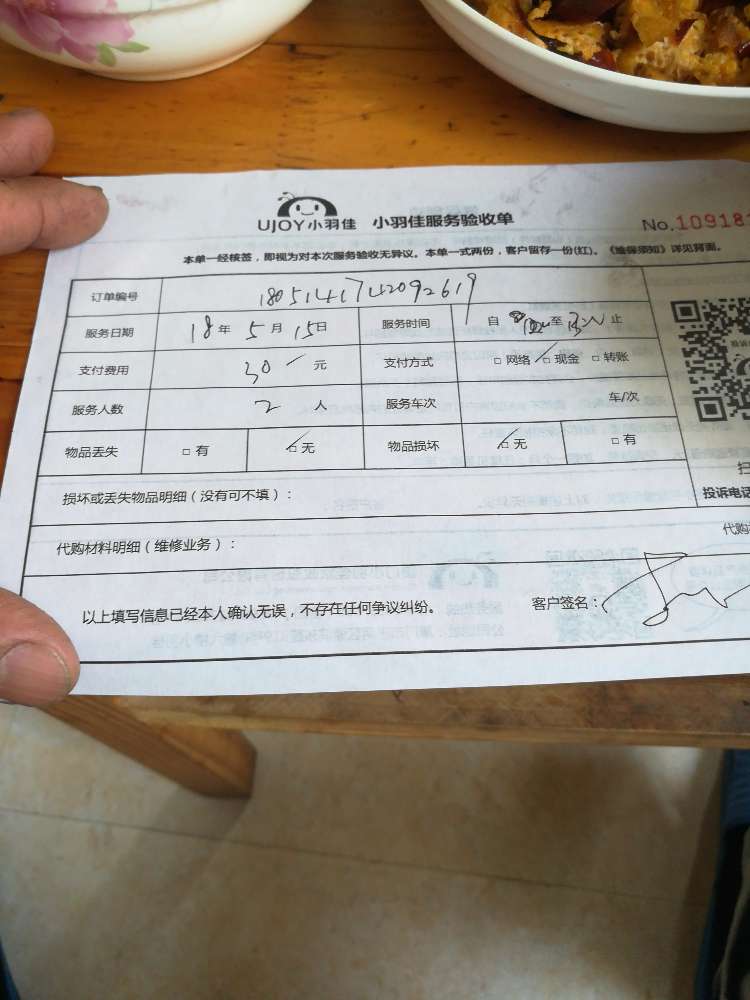 UJOY小羽佳 小羽佳服务验收单
No.109181
本单一经核签，即视为对本次服务验收无异议。本单一式两份，客户留存一份(红)。《维保须知》详见背面。
订单编号 180514174209 2619
服务日期 18年5月15日 服务时间 自 至 止
支付费用 30 元 支付方式 □ 网络 □ 现金 □ 转账
服务人数 2 人 服务车次 车/次
物品丢失 □ 有 □ 无 物品损坏 □ 无 □ 有
损坏或丢失物品明细（没有可不填）：
投诉电话
代购材料明细（维修业务）：
代购
以上填写信息已经本人确认无误，不存在任何争议纠纷。 客户签名：